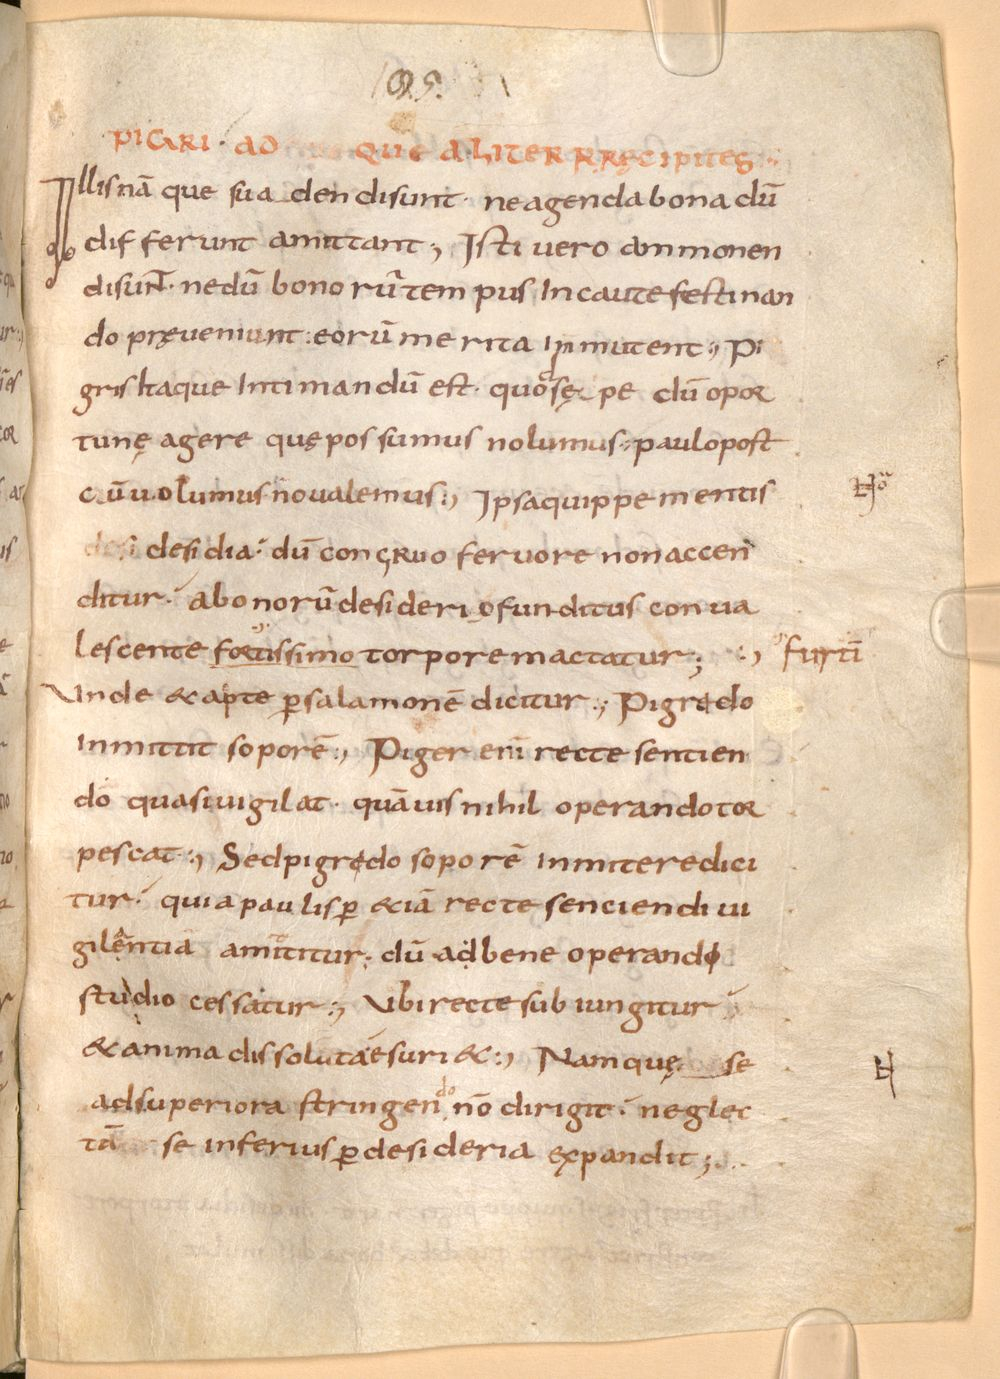 PIGRI · AD QUE ALITER PRĘCIPITES
Illis nā que suadendi sunt · ne agenda bona dū
differunt amittant ; Isti vero ammonen
di sunt · ne dū bonorū tempus Incaute festinan
do pręveniunt : eorū merita Inmutent ; Pi
gris Itaque Intimandū est · quō sępe dū opor
tunę agere quę possumus nolumus ; paulo post
cū volumus n̄o valemus ; Ipsa quippe mentis
desi desidia · dū congruo fervore non accen
ditur · a bonorū desiderio funditus conva
lescente fortissimo torpore mactatur ; furti
Unde & apte ꝑ salamonē dicitur ; Pigredo
Inmittit soporē ; Piger enī recte sentien
do quasi vigilat · quāvis nihil operando tor
pescat ; Sed pigredo soporē Inmitere dici
tur · quia paulisꝑ &iā recte senciendi vi
gilantia amittitur ; dū ad bene operandi
studio cessatur ; Ubi recte subiungitur
& anima dissoluta esuri& ; Nam quę se
ad superiora stringendo nō dirigit · neglec
tā se inferius ꝑ desideria expandit ;